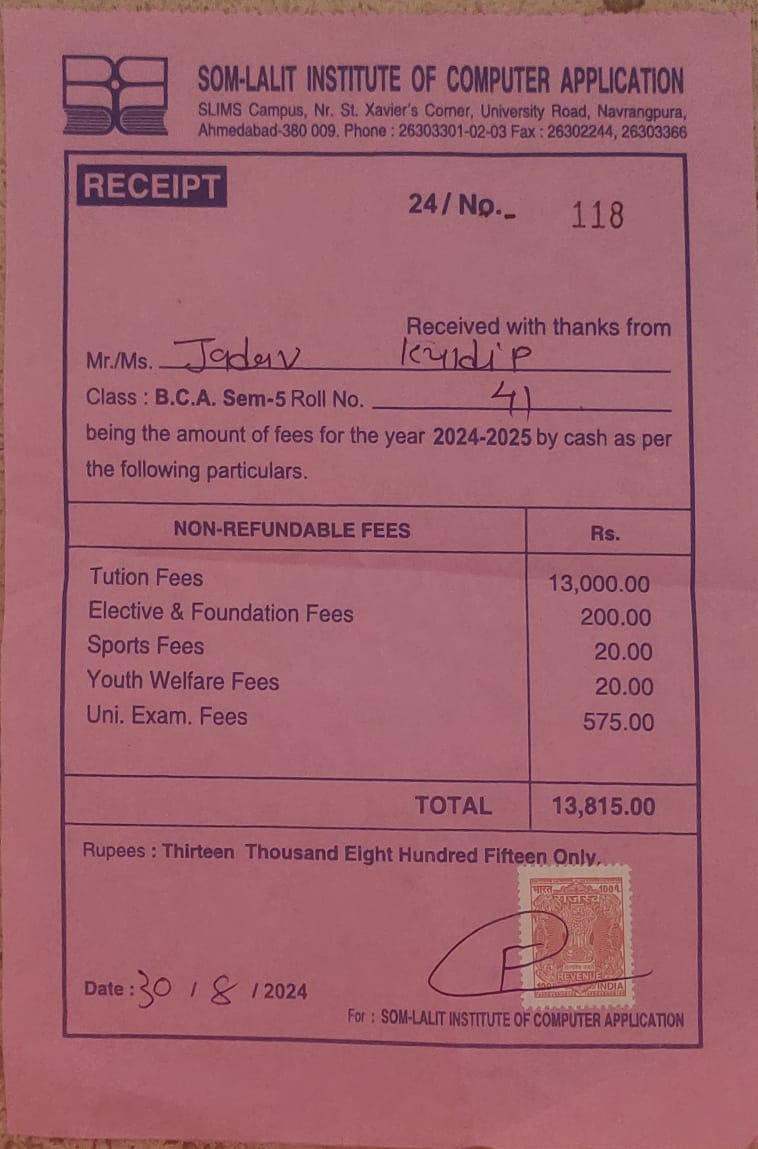 SOM-LALIT INSTITUTE OF COMPUTER APPLICATION
SLIMS Campus, Nr. St. Xavier's Corner, University Road, Navrangpura,
Ahmedabad-380 009. Phone : 26303301-02-03 Fax : 26302244, 26303366
RECEIPT
24 / No.- 118
Received with thanks from
Mr./Ms. Jadav Kuldip
Class : B.C.A. Sem-5 Roll No. 41
being the amount of fees for the year 2024-2025 by cash as per
the following particulars.
NON-REFUNDABLE FEES Rs.
Tution Fees 13,000.00
Elective & Foundation Fees 200.00
Sports Fees 20.00
Youth Welfare Fees 20.00
Uni. Exam. Fees 575.00
TOTAL 13,815.00
Rupees : Thirteen Thousand Eight Hundred Fifteen Only.
भारत
REVENUE
INDIA
Date : 30 / 8 / 2024
For : SOM-LALIT INSTITUTE OF COMPUTER APPLICATION